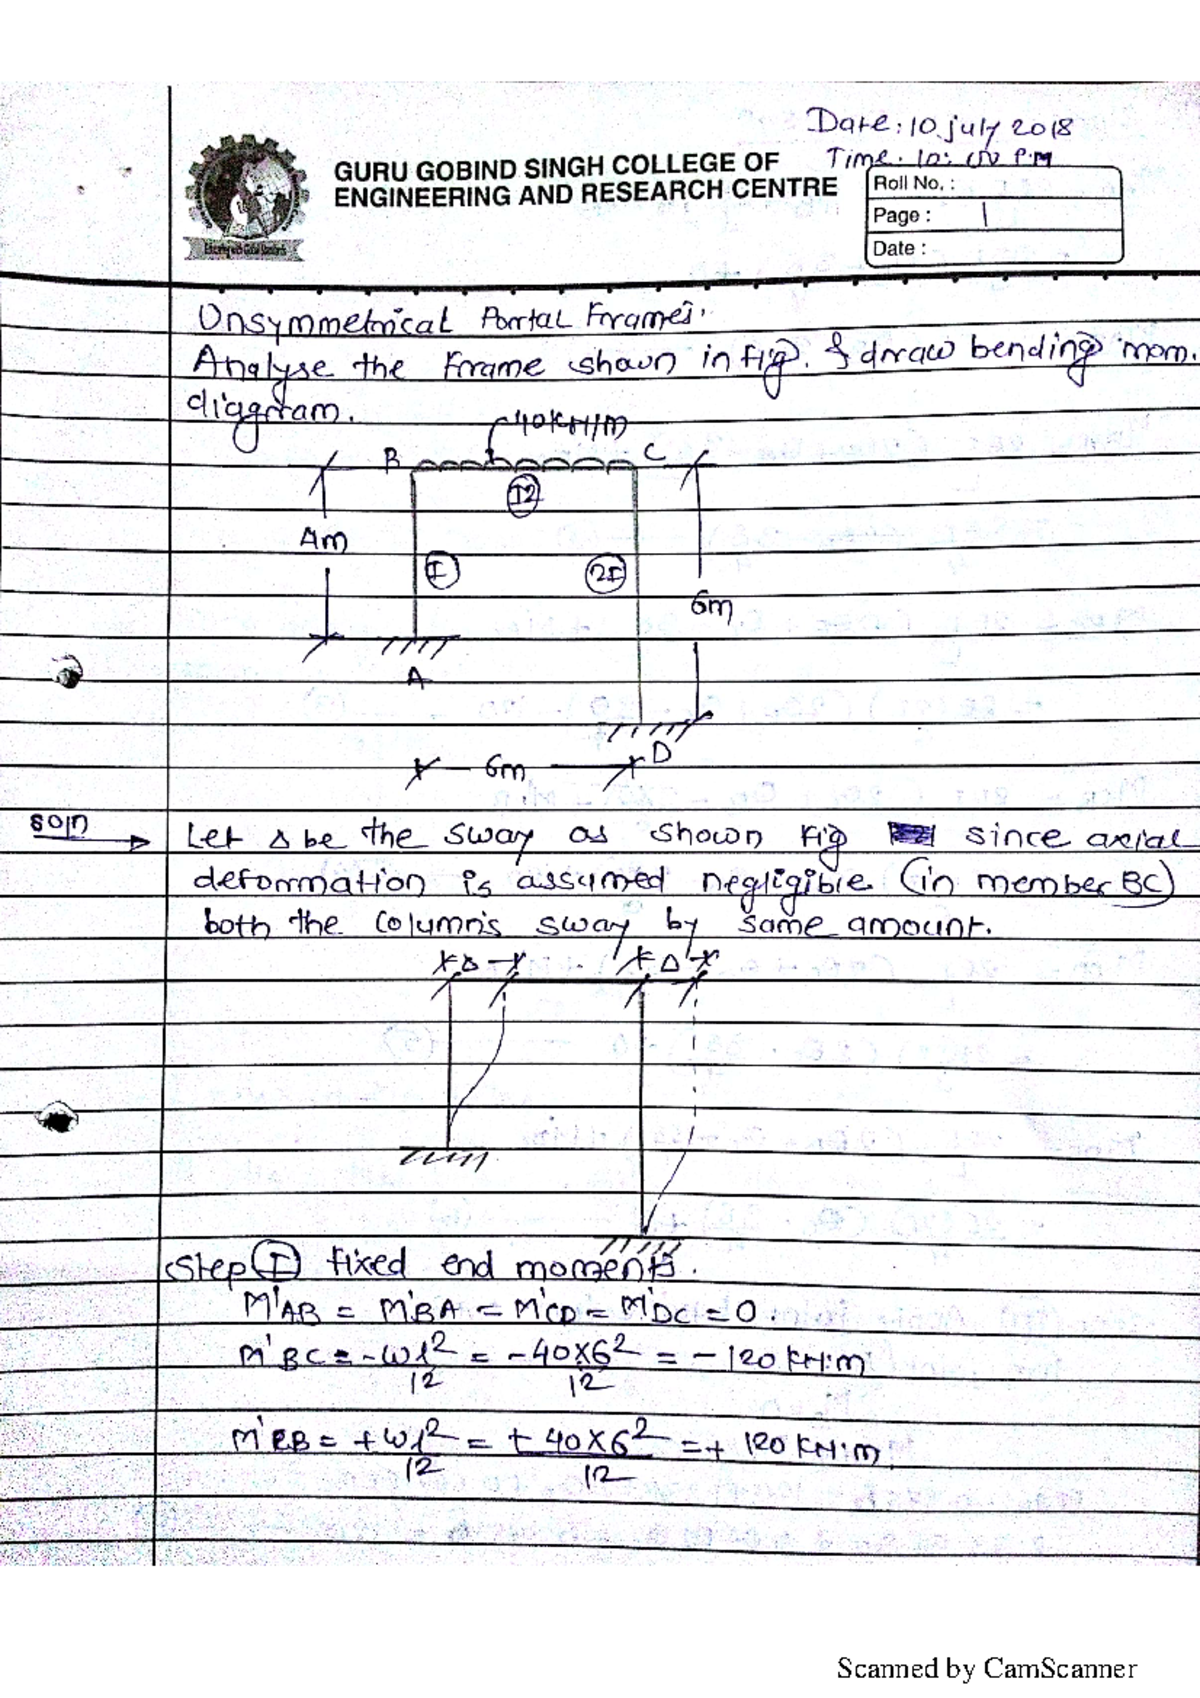 Date: 10 july 2018
Time. 10: P.M
GURU GOBIND SINGH COLLEGE OF
ENGINEERING AND RESEARCH CENTRE
Roll No. :
Page : 1
Date :
Unsymmetrical Portal Frames.
Analyse the frame shown in fig. & draw bending mom.
diagram.
40KN/m
B
C
I2
4m
I
2I
6m
A
D
6m
soln
Let Δ be the sway as shown fig since axial
deformation is assumed negligible (in member BC)
both the columns sway by same amount.
Δ
Δ
Step I fixed end moments.
M'AB = M'BA = M'CD = M'DC = 0.
M'BC = -Wl² = -40X6² = -120 KN.m
12 12
M'CB = +Wl² = + 40X6² = + 120 KN.m
12 12
Scanned by CamScanner